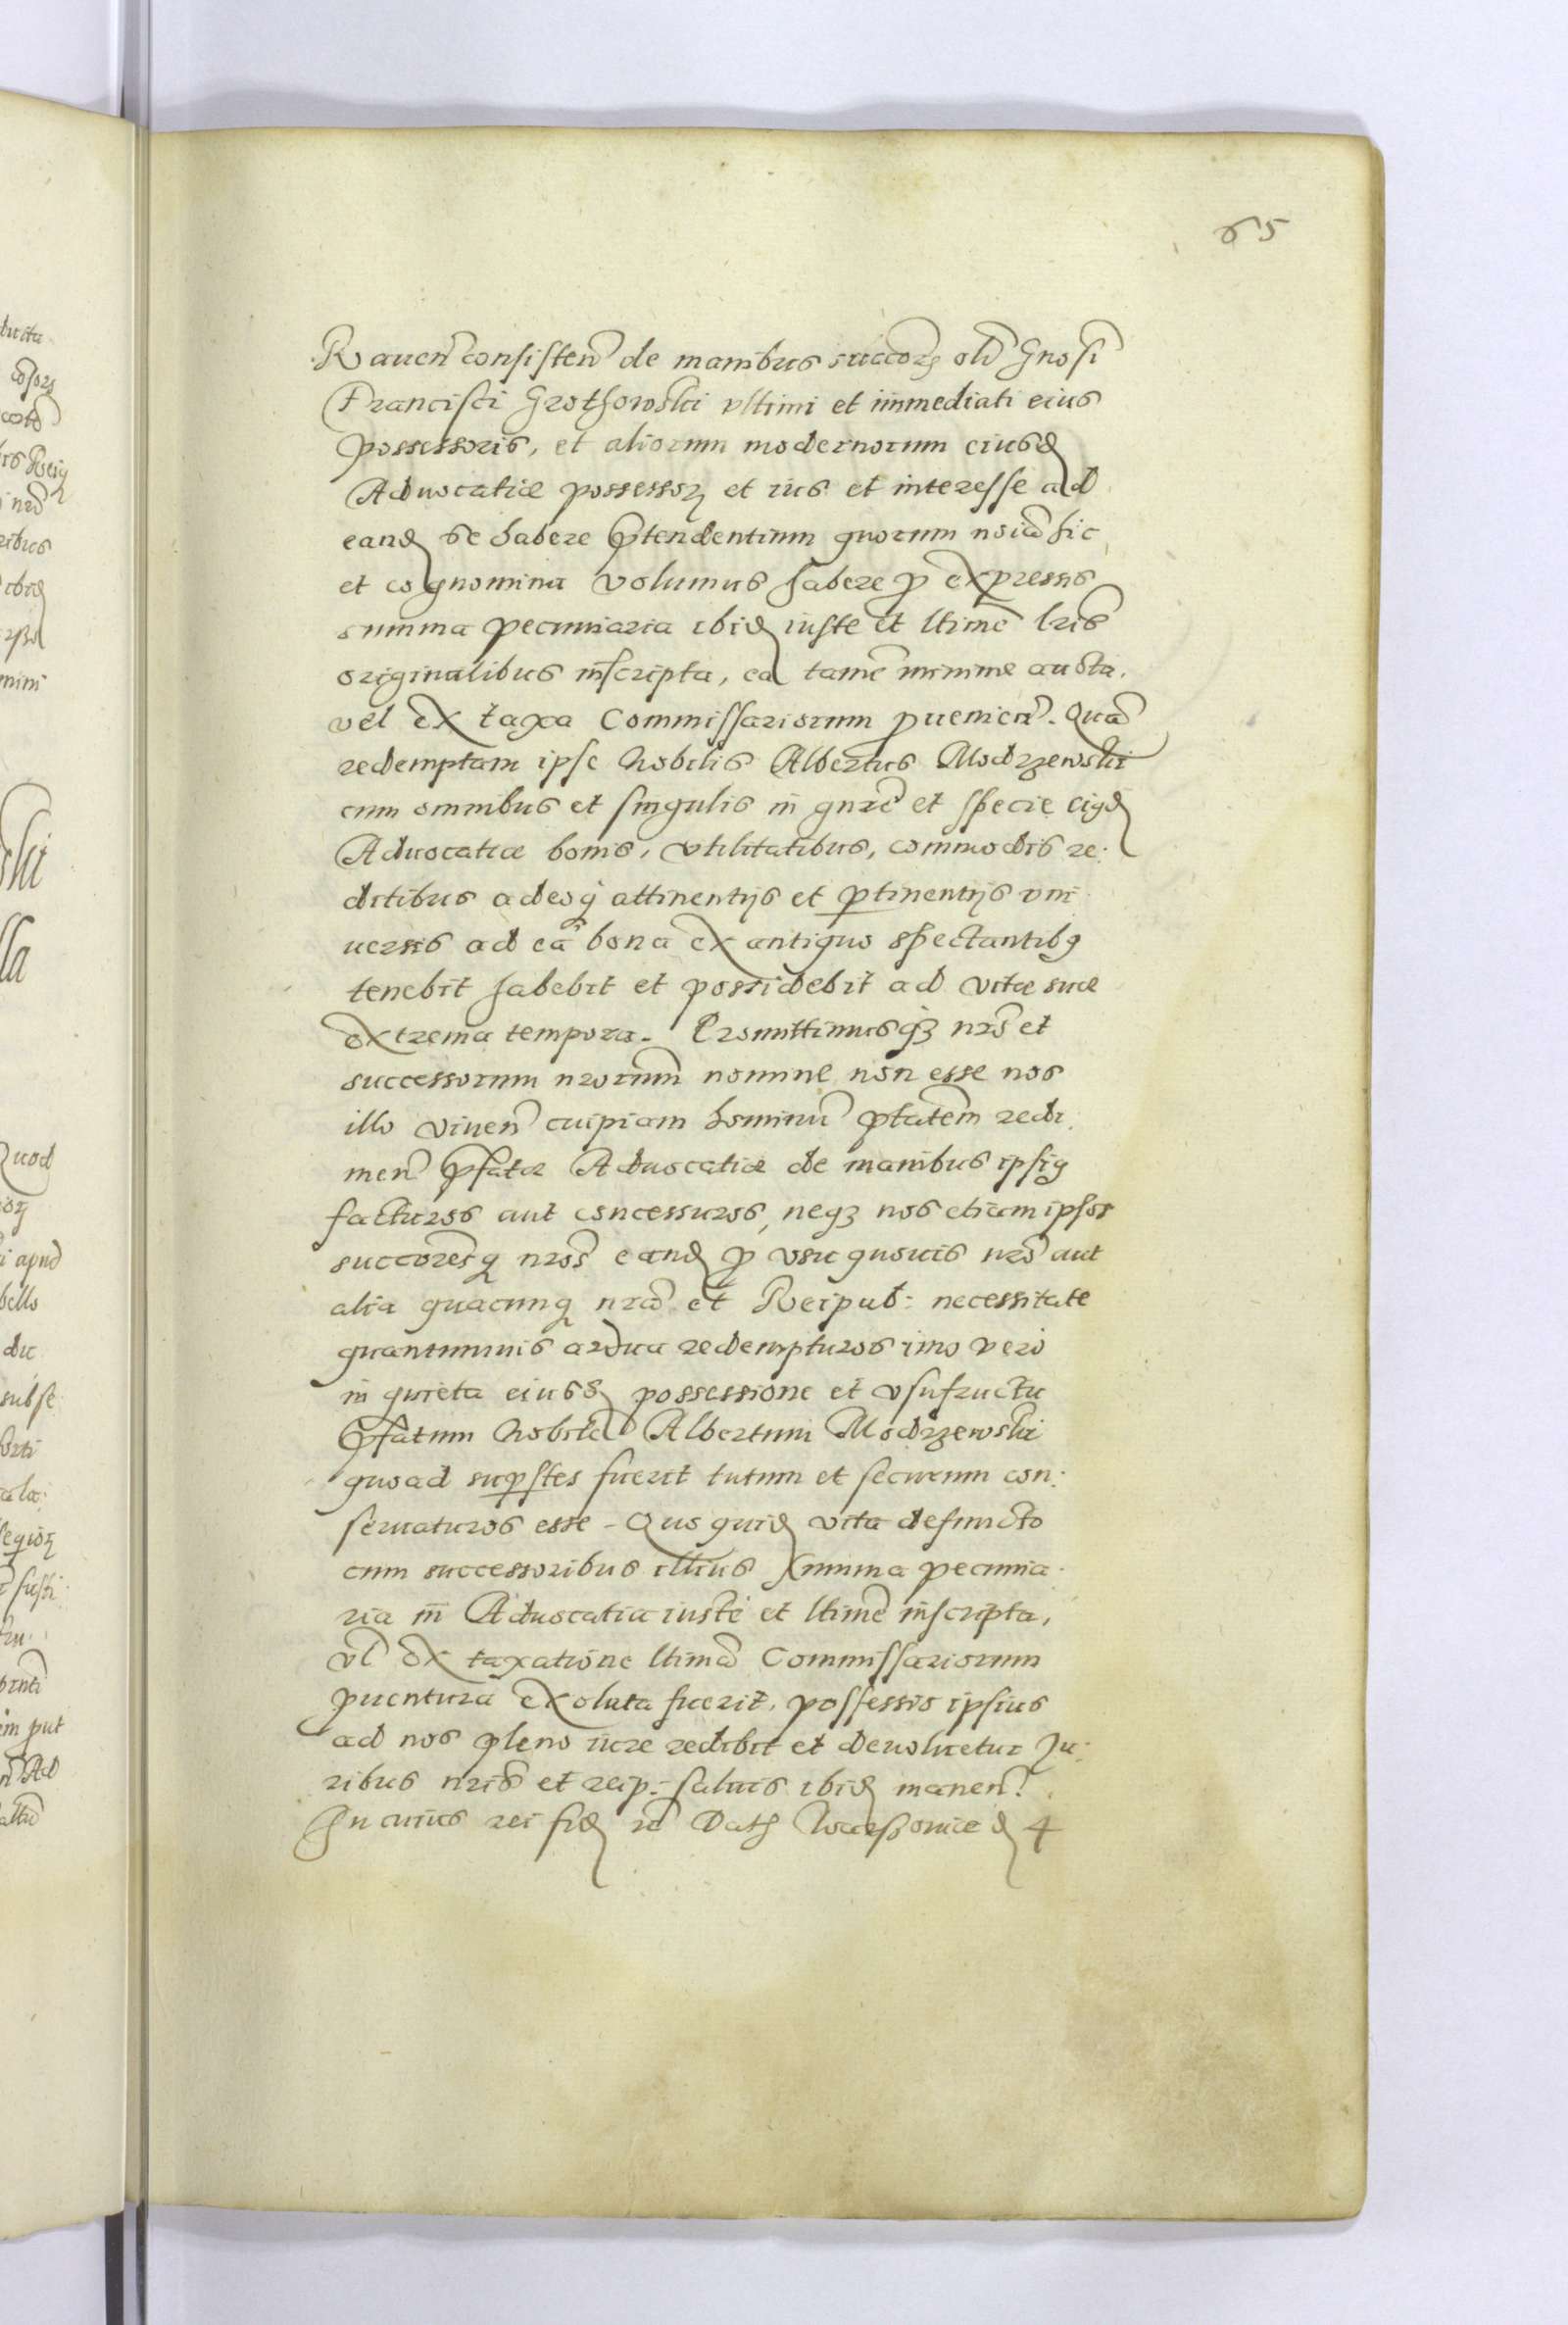 65
Rauen̄ consisten̄ de manibus succorꝝ olī Gnosi
Francisci Grothowski vltimi et immediati eius
possessoris, et aliorum modernorum eiusd
Aduocatiæ possessorꝝ et ius et interesse ad
eand se habere p̄tendentium quorum noīa hic
et cognomina volumus habere p expressis
summa pecuniaria ibid iuste et ltimē lrīs
originalibus inscripta, ea tamē minime aucta,
vel ex taxa Commissariorum puenien̄. Quā
redemptam ipse Nobilis Albertus Modrzewski
cum omnibus et singulis in gnrē et specie eiꝰd
Aduocatiæ bonis, vtilitatibus, commodis re:
ditibus adeoq̨ attinentijs et ꝑtinentijs vni
uersis ad eā bona ex antiquo spectantibꝰ
tenebit habebit et possidebit ad vitæ suæ
extrema tempora. Promittimusqꝫ nrō et
successorum nrorum̄ nomine non esse nos
illo viuen̄ cuipiam hominū ptatem̄ redi
men̄ p̄fatæ Aduocatiæ de manibus ipsiꝰ
facturos aut concessuros, neqꝫ nos etiam ipsos
succoresq̨ nros̄ eand p vsu quouis nrō aut
alia quacunq̨ nrā et Reipub: necessitate
quantumuis ardua redempturos imo vero
in quieta eiusd possessione et vsufructu
p̄fatum Nobilē Albertum Modrzewski
quoad suꝑstes fuerit tutum et securum con:
seruaturos esse. Quo quid vita defuncto
cum successoribus illius summa pecunia
ria in Aduocatia iuste et ltimē inscripta,
vl̄ ex taxatione ltimā Commissariorum
puentura exoluta fuerit, possessio ipsius
ad nos pleno iure redibit et deuoluetur Ju:
ribus nrīs et reip: saluis ibid manen̄.
In cuius rei fid rc̄ Dat Warssouiæ d 4